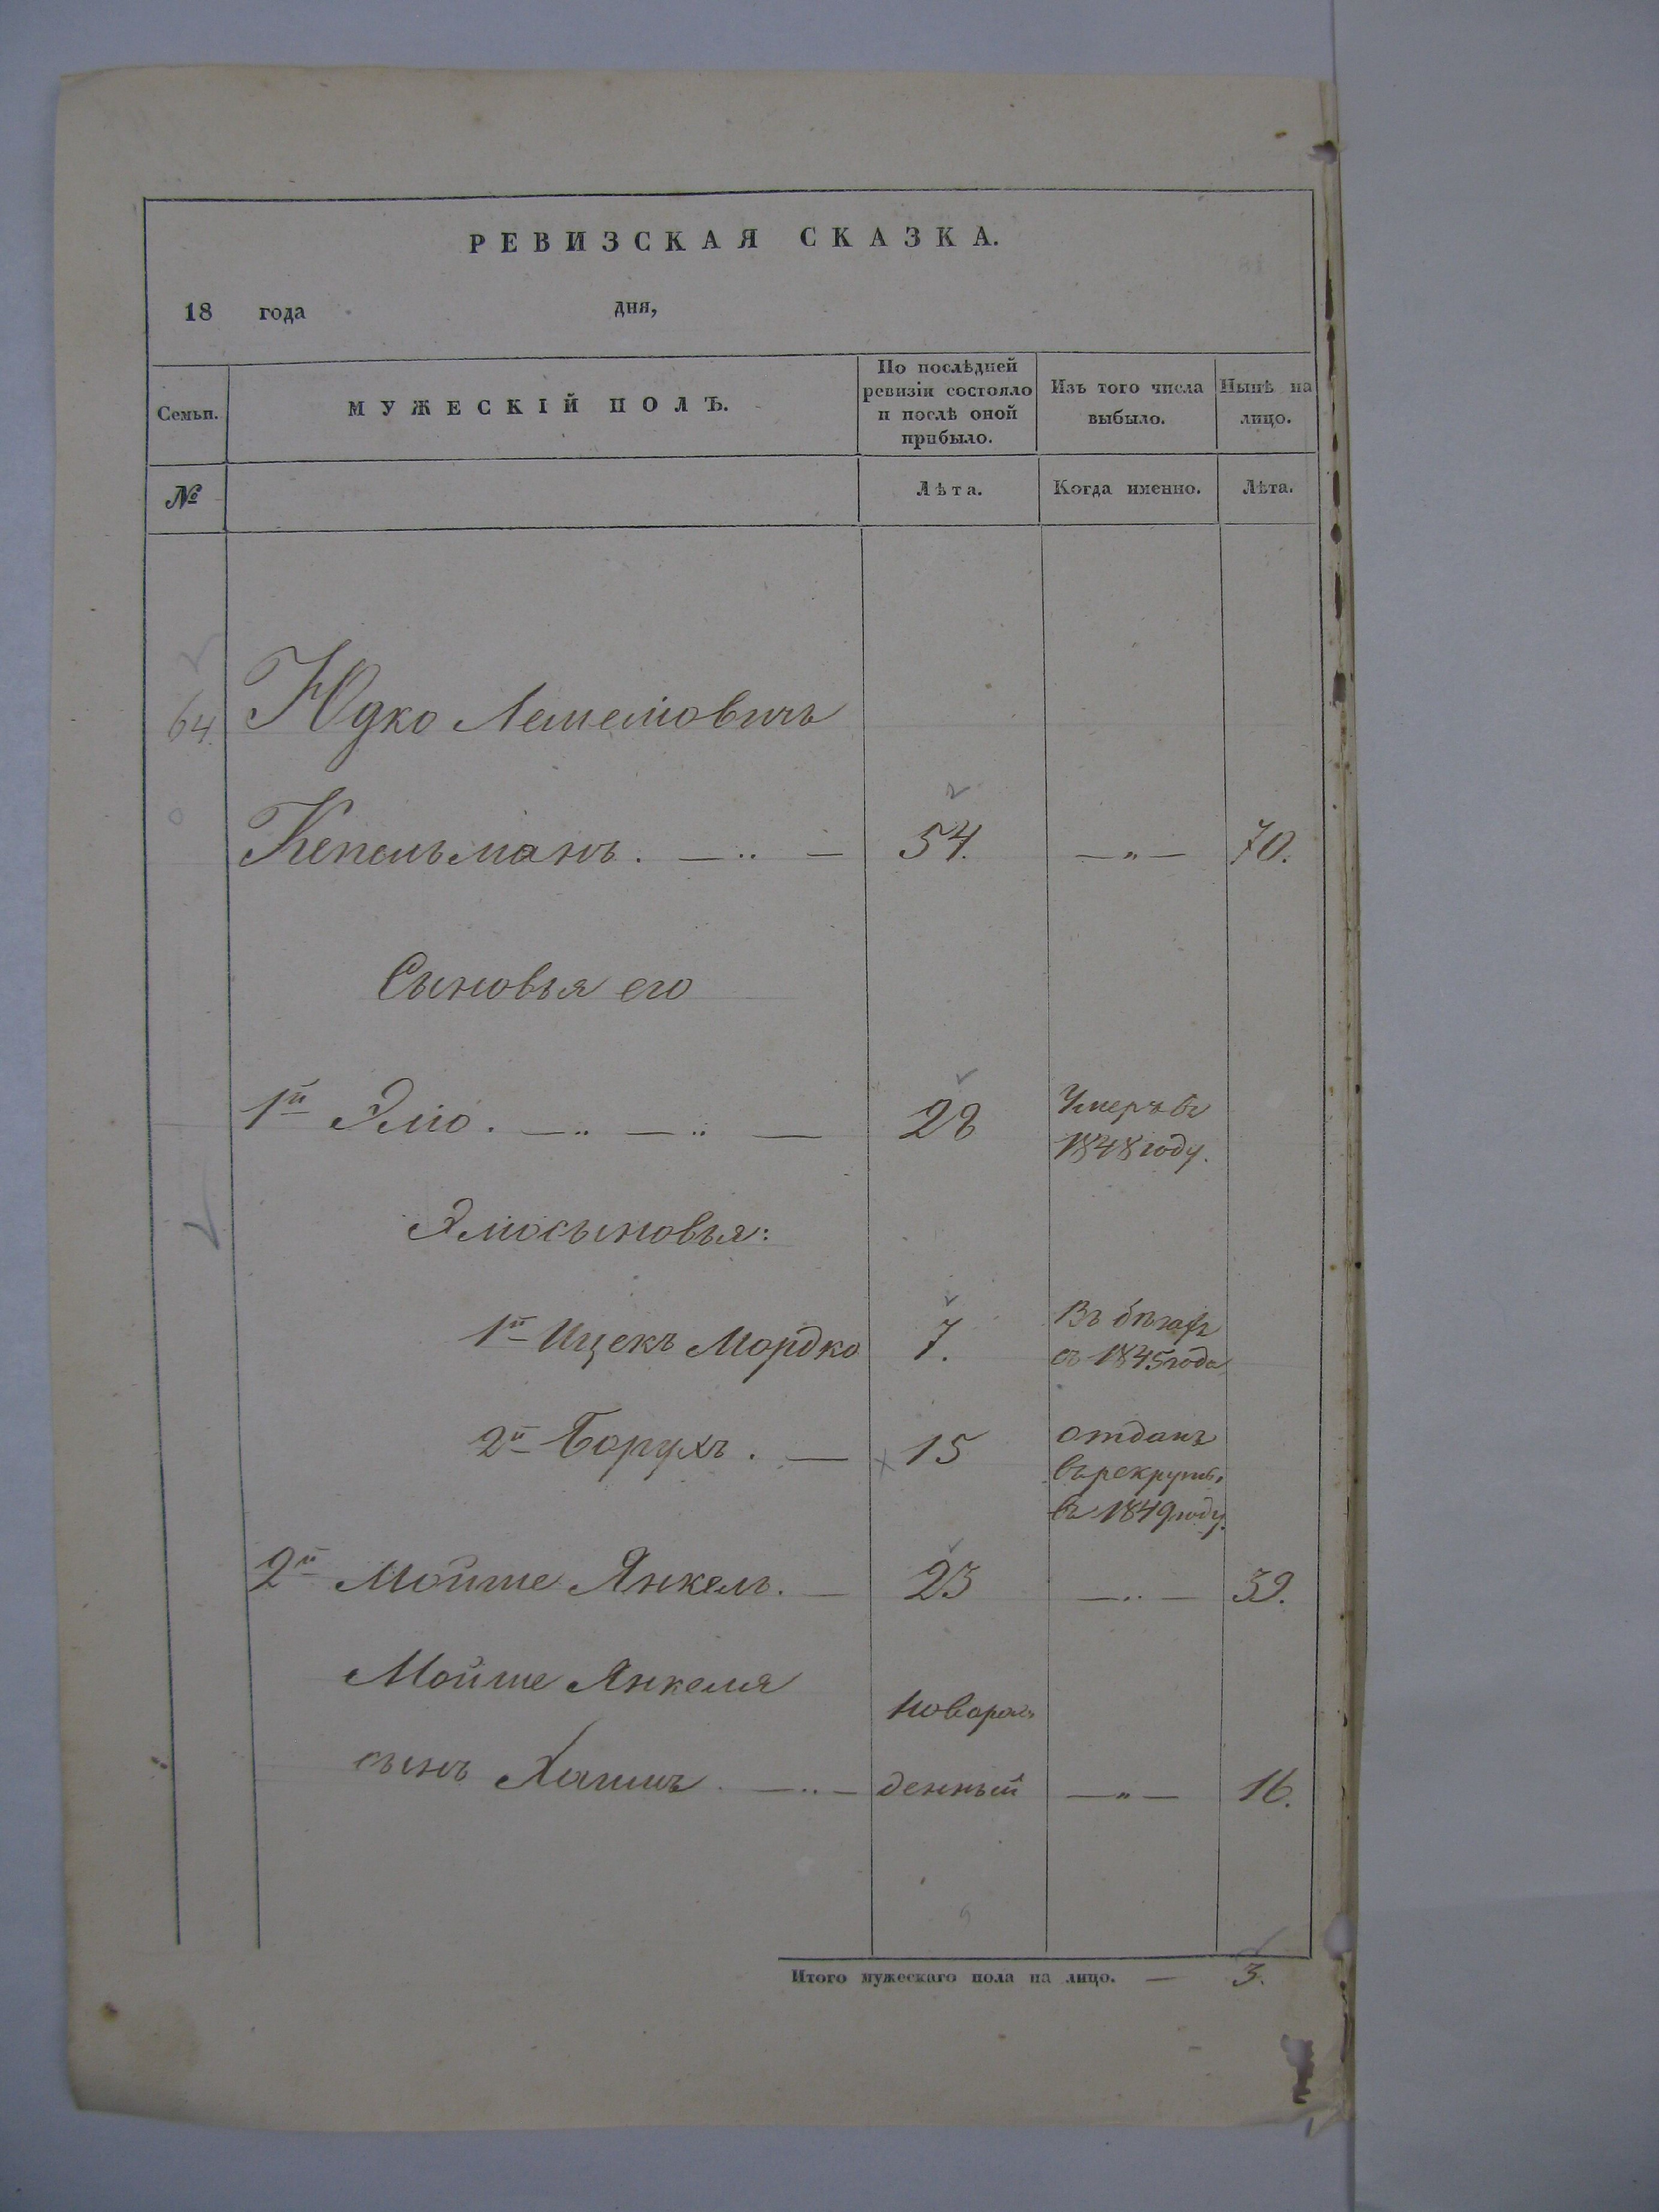 РЕВИЗСКАЯ СКАЗКА.
18 года дня,
Семьи.
МУЖЕСКІЙ ПОЛЪ.
По послѣдней ревизіи состояло и послѣ оной прибыло.
Изъ того числа выбыло.
Нынѣ на лицо.
№
Лѣта.
Когда именно.
Лѣта.
64. Юдко
Кепельманъ. — „ — 54. — „ — 70.
Сыновья его
1й Элio. — „ — „ — 28 Умеръ въ
1848 году.
Элiосыновья:
1й Ицекъ Мордко 7. Въ бѣгахъ
съ 1845 года
2й Борухъ. — 15 отданъ
въ рекруты
въ 1849 году.
2й Мойше Янкель. — 23 — „ — 39.
Мойше Янкеля
новорож
сынъ Хаимъ. — „ — денный — „ — 16.
Итого мужескаго пола на лицо. — 3.